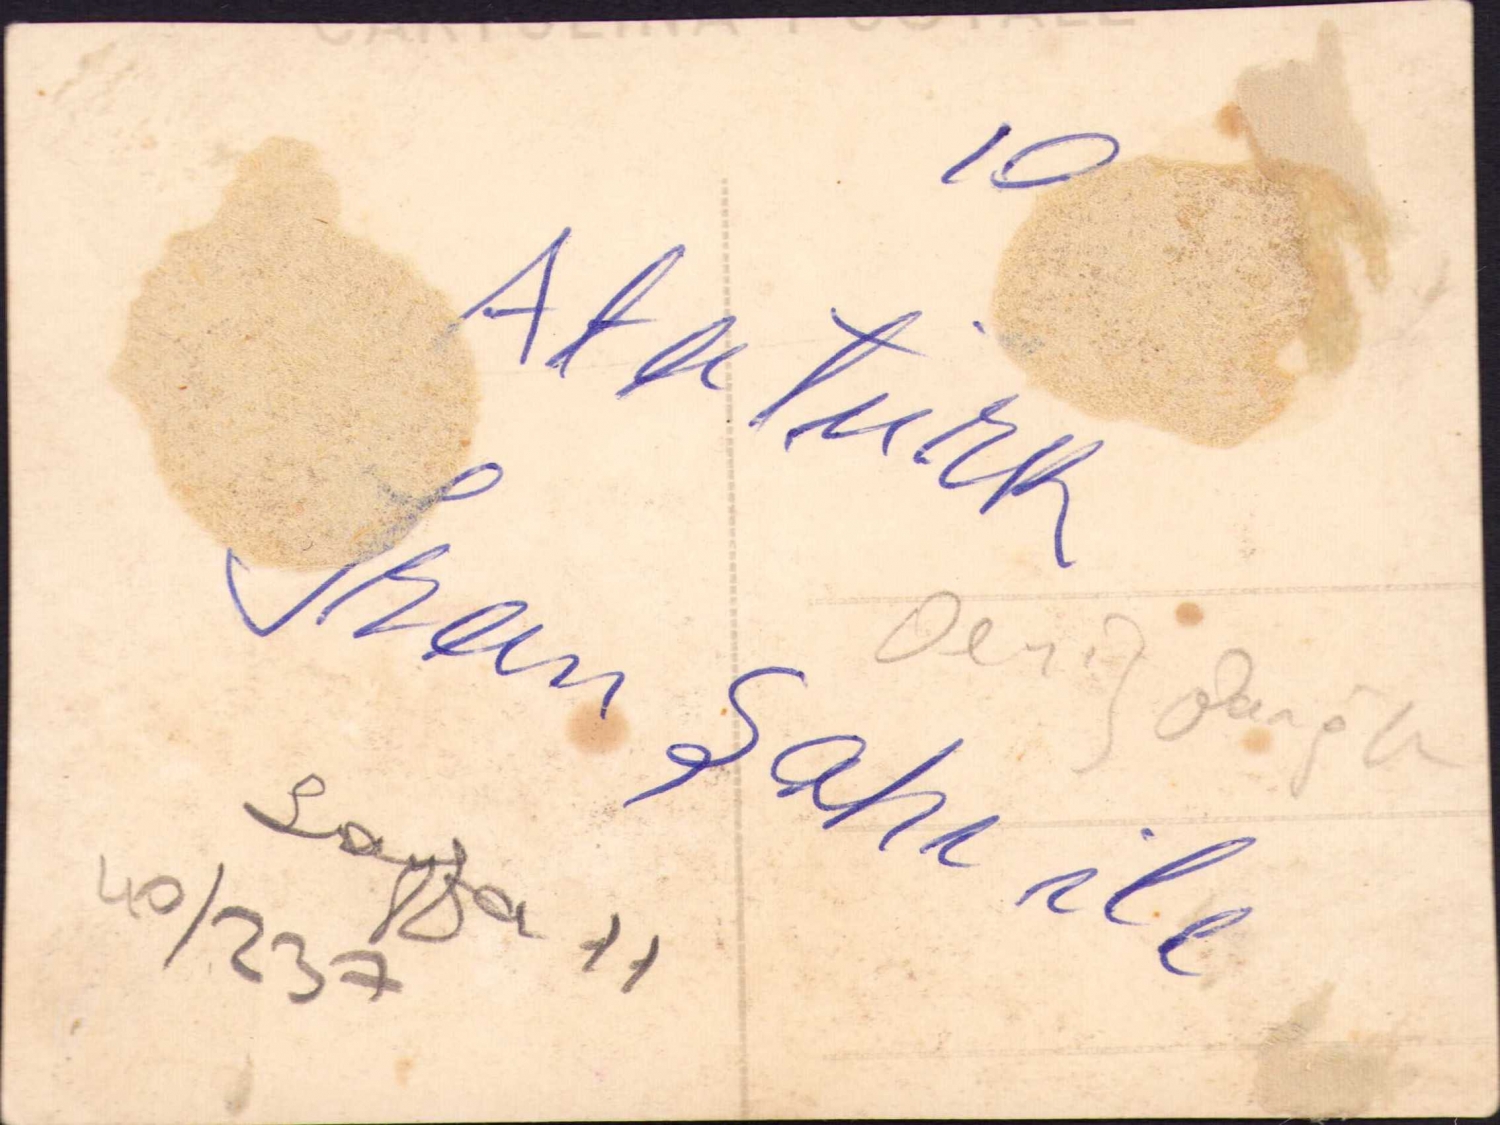 CARTOLINA POSTALE
10
Atatürk
İran Şahı ile
Deniz
Sayfa 11
40/237